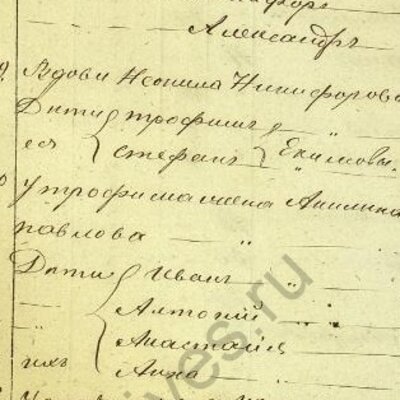 Александръ
Вдова Неонила Никифорова
Дѣти Трофимъ
ея Стефанъ Екимовы
У Трофима жена Акилина
Павлова — "
Дѣти Иванъ — "
— Антоній
" Анастасія
ихъ Анна — "
ives.ru